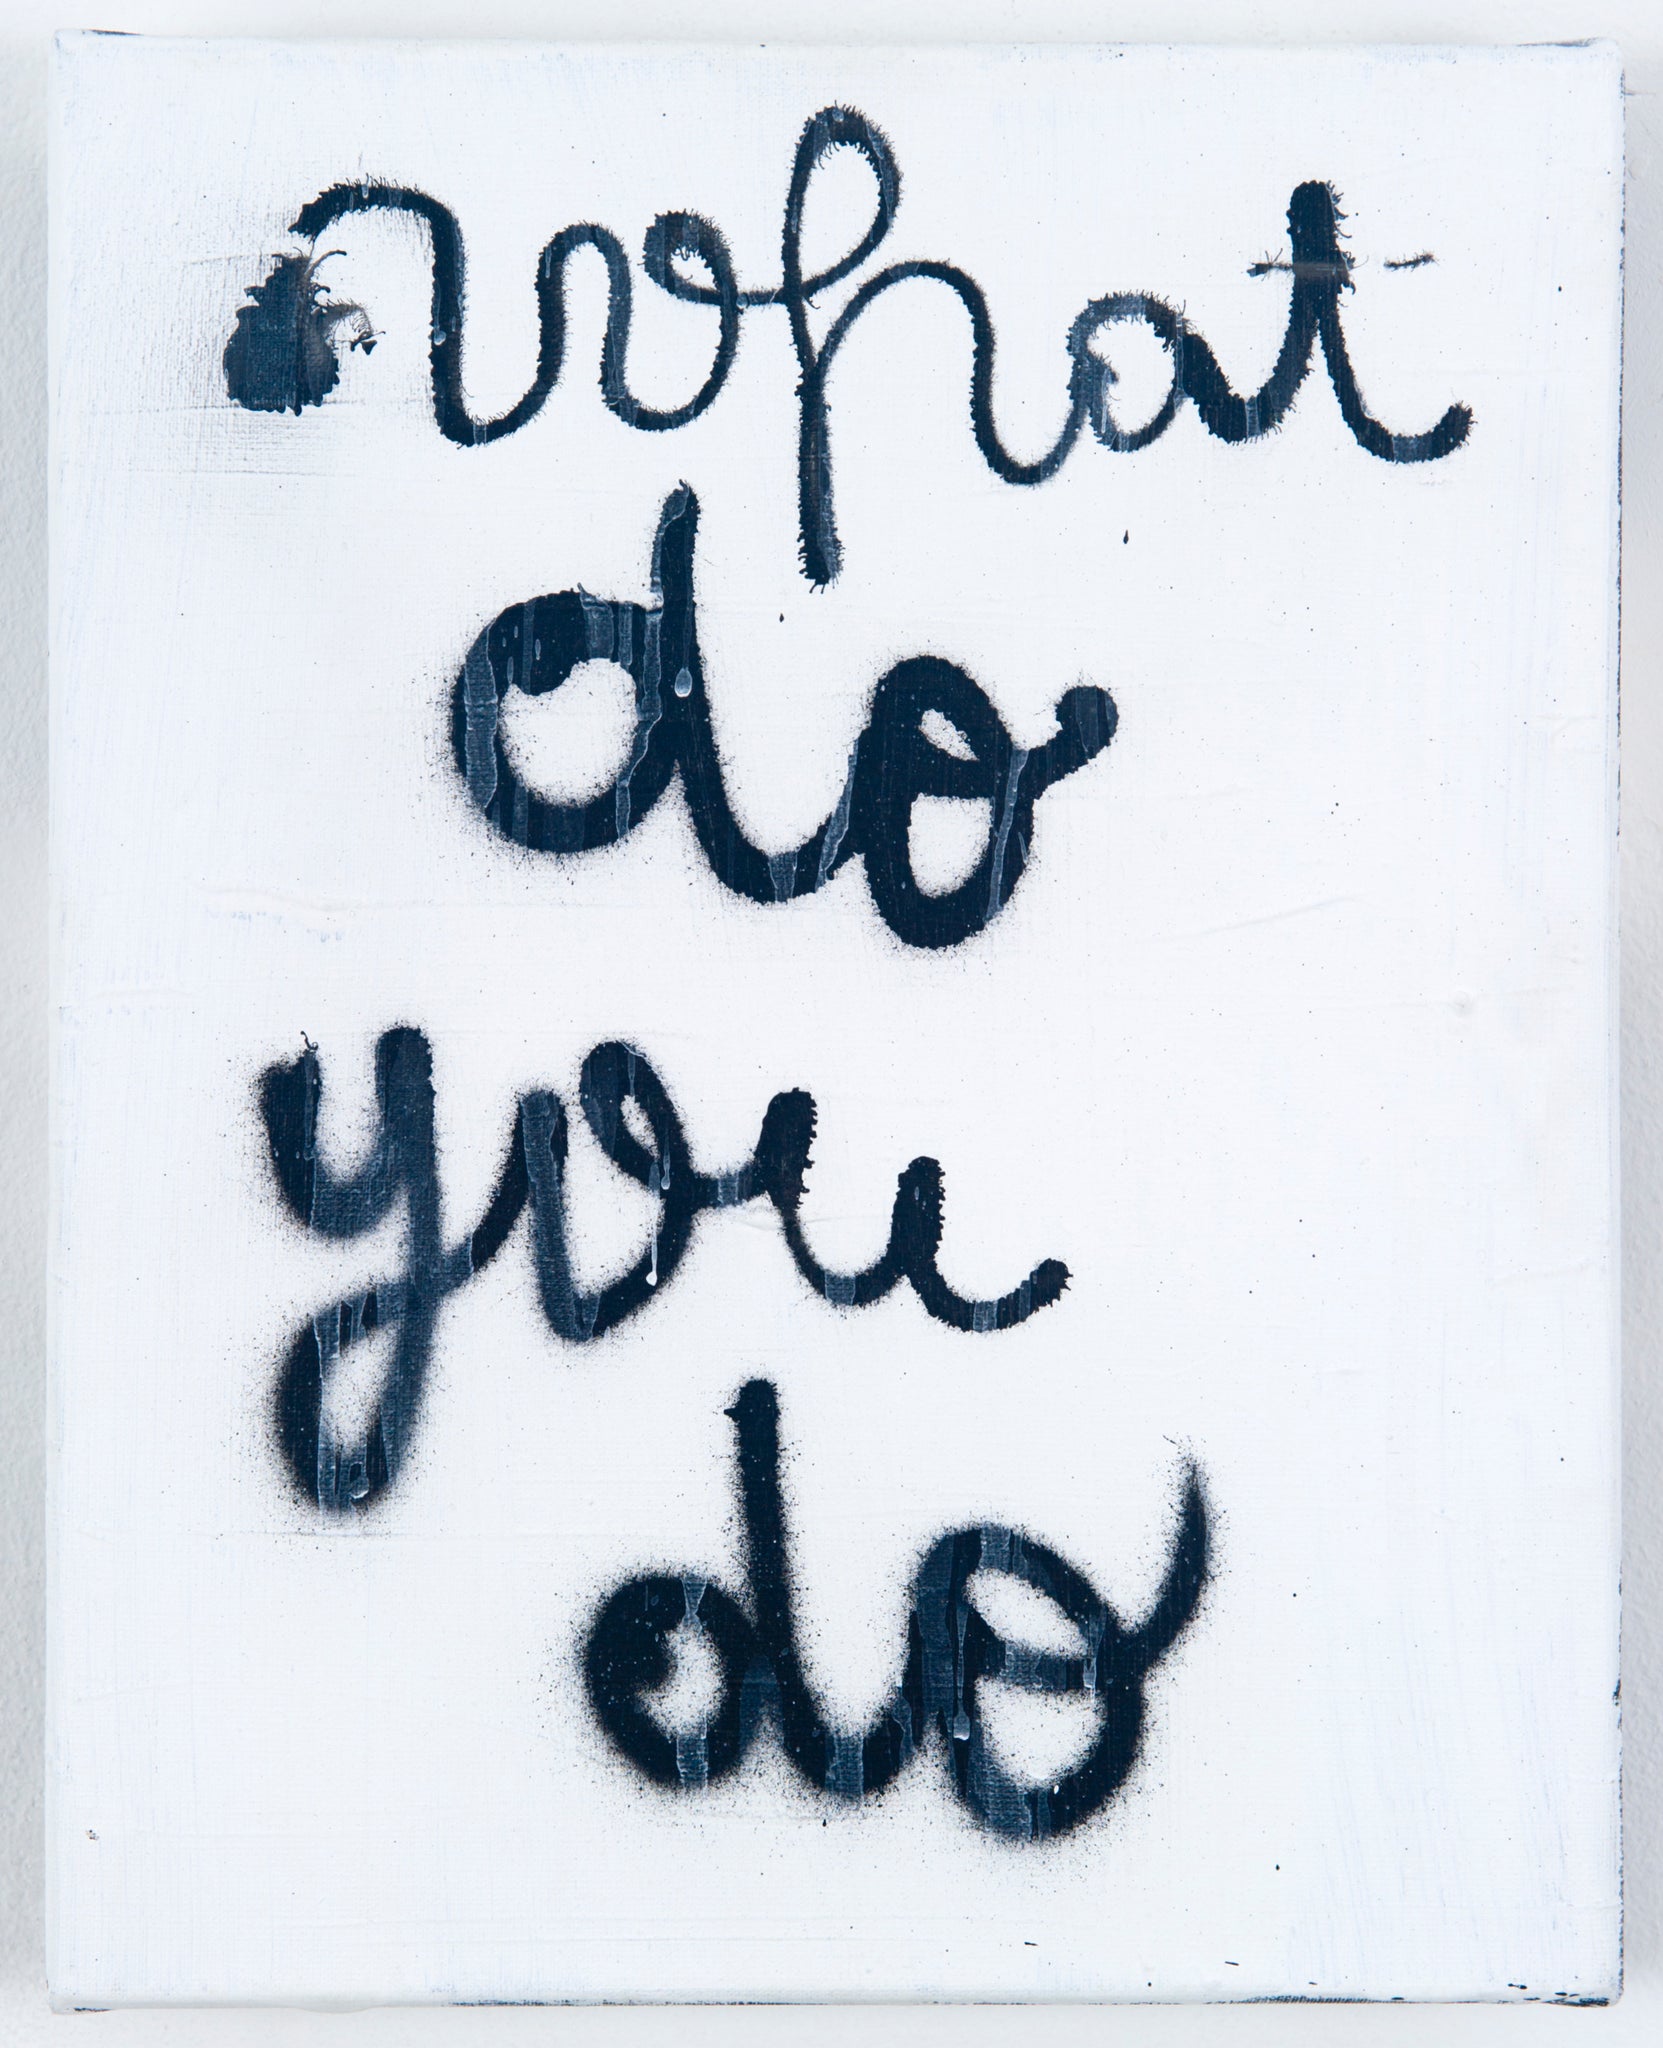 what
do
you
do